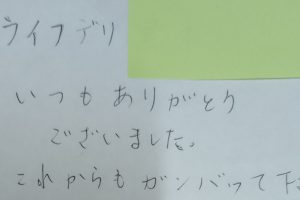 ライフデリ
いつもありがとう
ございました。
これからもガンバって下さ